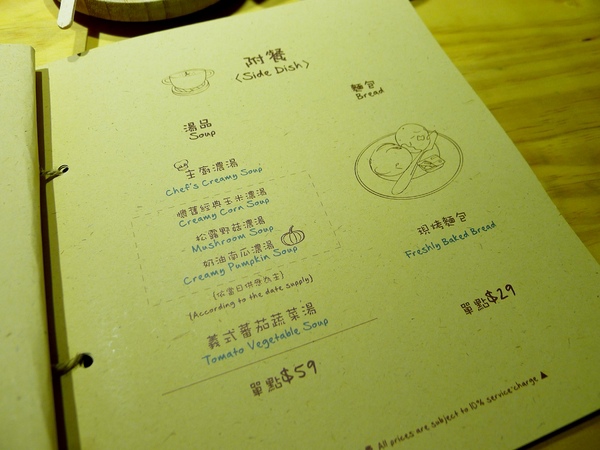 附餐
(Side Dish)
湯品
Soup
主廚濃湯
Chef's Creamy Soup
經典玉米濃湯
Creamy Corn Soup
松露野菇濃湯
Mushroom Soup
奶油南瓜濃湯
Creamy Pumpkin Soup
(依當日供應為主)
(According to the date supply)
義式蕃茄蔬菜湯
Tomato Vegetable Soup
單點$59
麵包
Bread
現烤麵包
Freshly Baked Bread
單點$29
All prices are subject to 10% service charge ▲